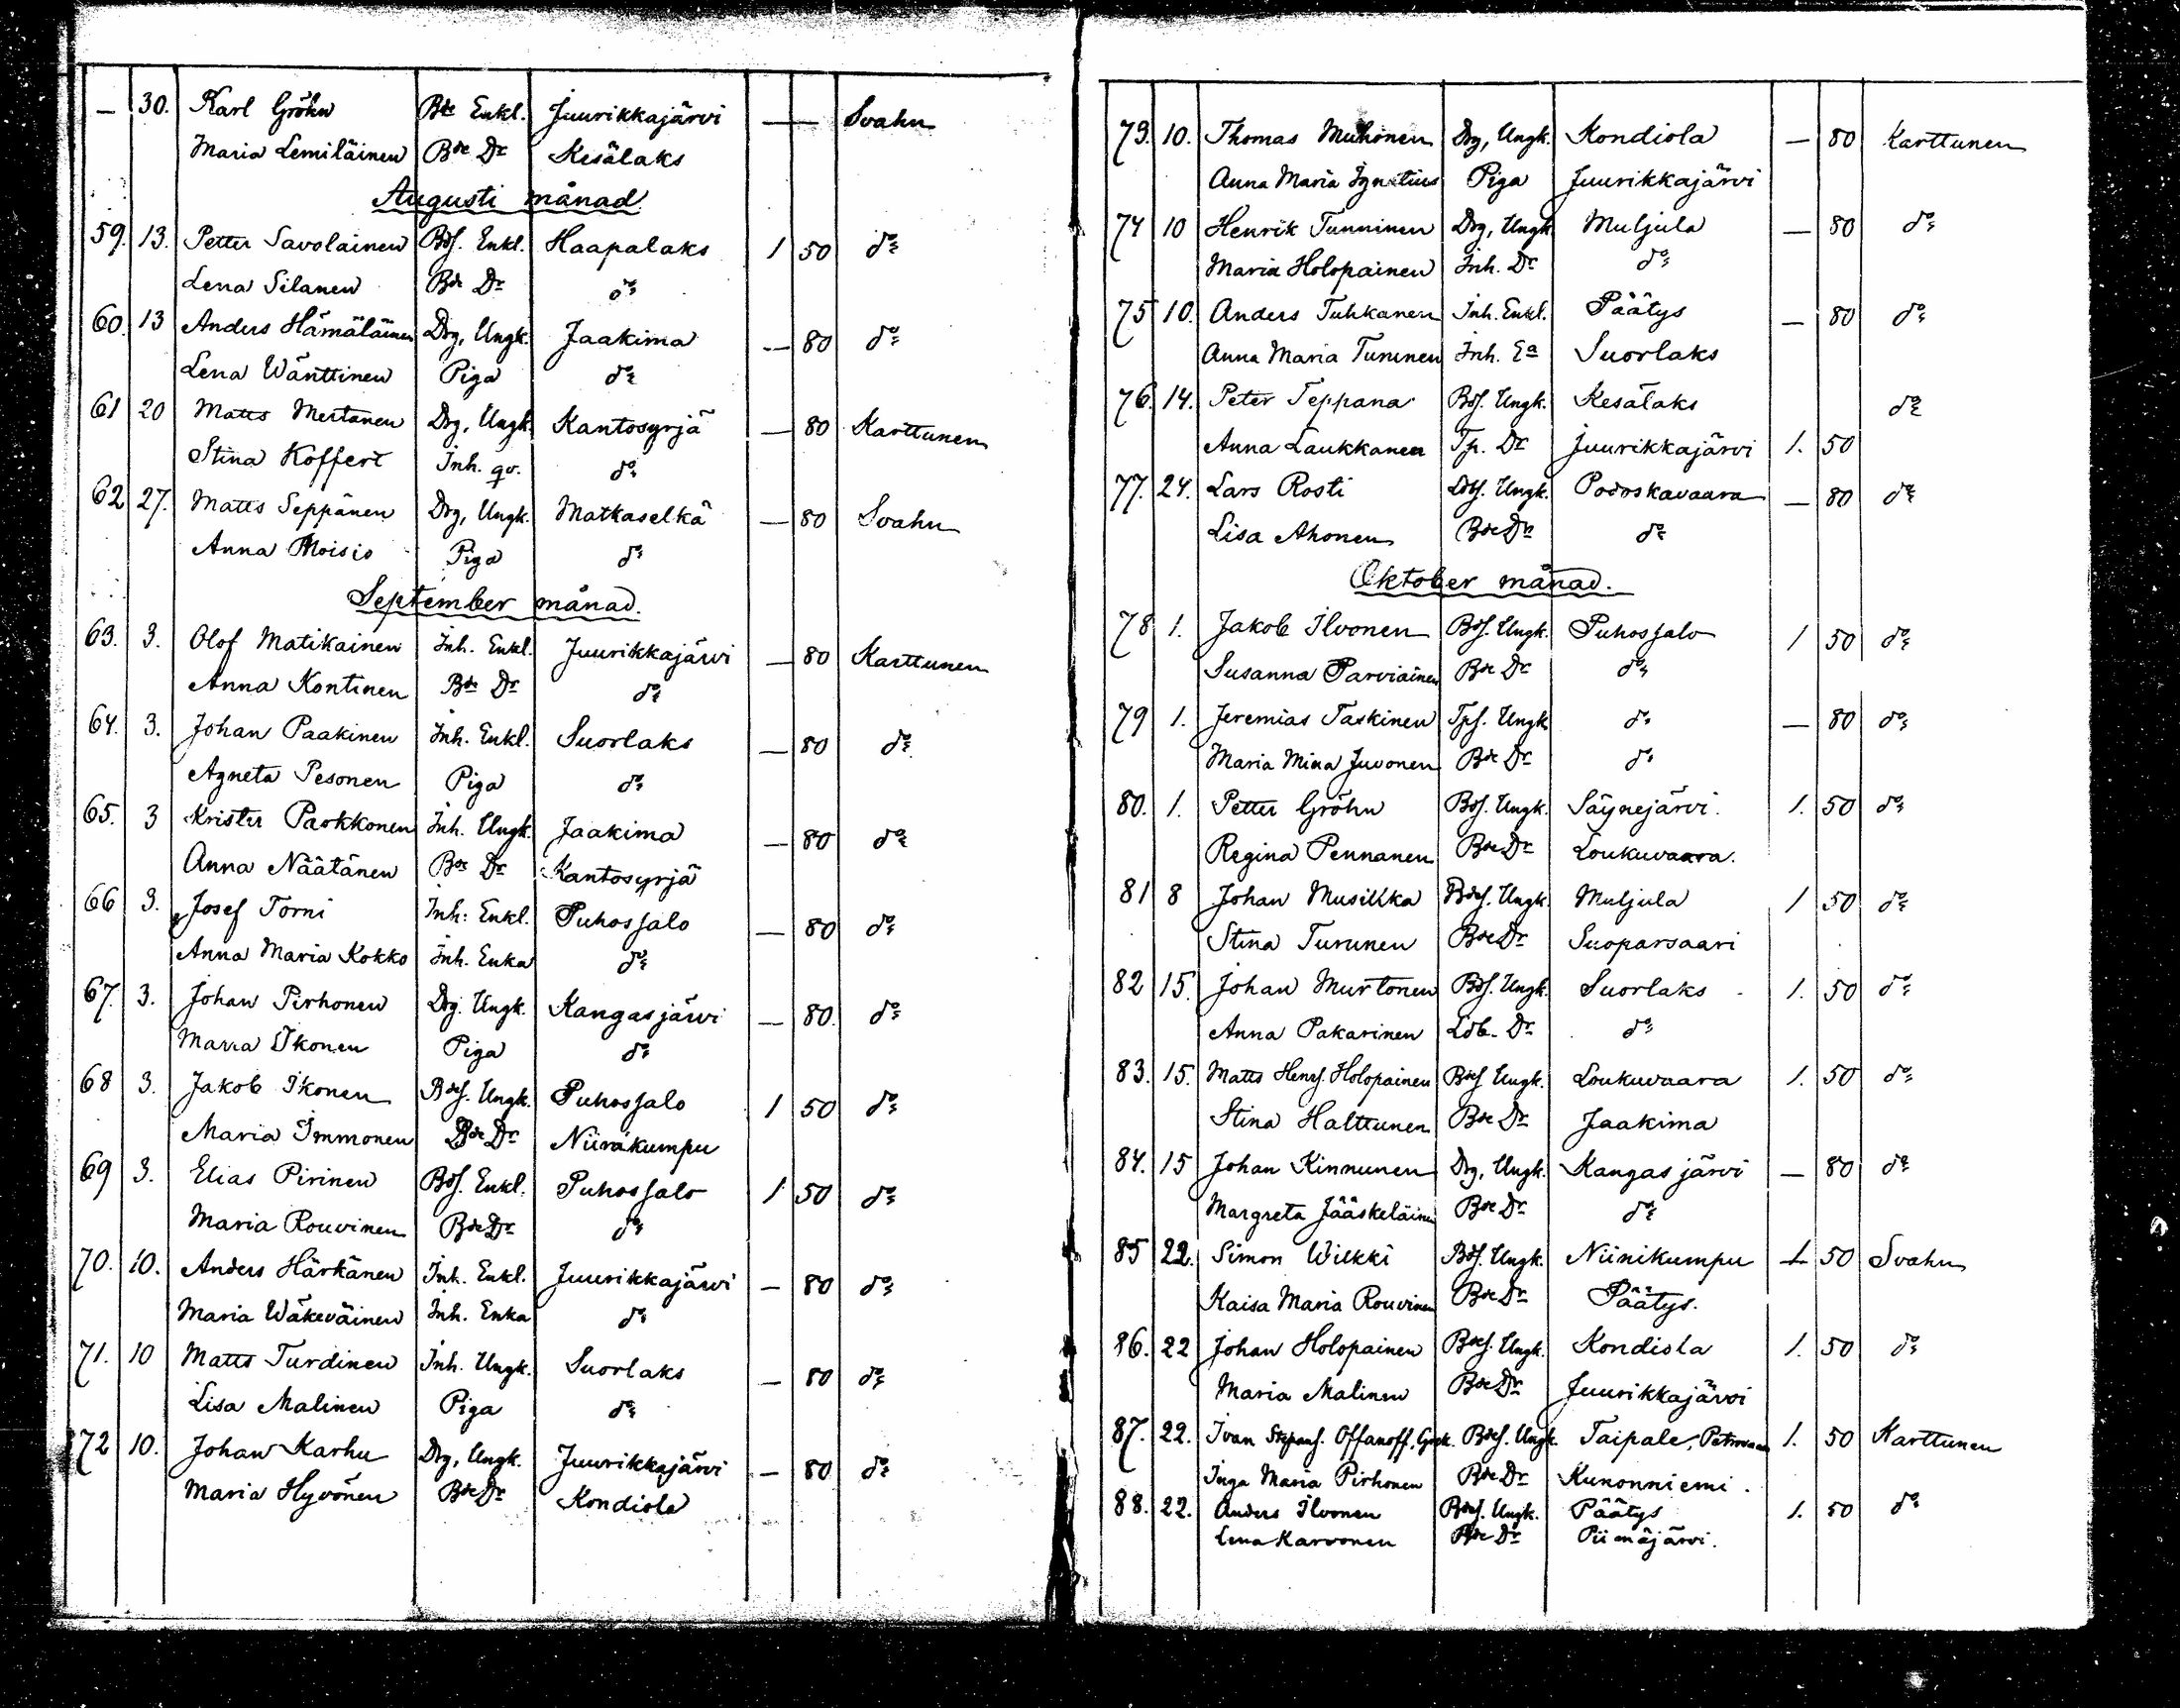 — 30. Karl Gröhn Bde Enkl. Juurikkajärvi — — Svahn
Maria Lemiläinen Bde Dr Kesälaks
Augusti månad
59. 13. Petter Savolainen Bdf. Enkl. Haapalaks 1 50 do
Lena Silanen Bde Dr do
60. 13 Anders Hämäläinen Drg, Ungk. Jaakima — 80 do
Lena Wänttinen Piga do
61 20 Matts Mertanen Drg, Ungk. Kantosyrjä — 80 Karttunen
Stina Koffert Inh. qv. do
62 27. Matts Seppänen Drg, Ungk. Matkaselkä — 80 Svahn
Anna Moisio Piga do
September månad.
63. 3. Olof Matikainen Inh. Enkl. Juurikkajärvi — 80 Karttunen
Anna Kontinen Bde Dr do
64. 3. Johan Paakinen Inh. Enkl. Suorlaks — 80 do
Agneta Pesonen Piga do
65. 3 Krister Parkkonen Inh. Ungk. Jaakima — 80 do
Anna Näätänen Bde Dr Kantosyrjä
66 3. Josef Torni Inh. Enkl. Puhossalo — 80 do
Anna Maria Kokko Inh. Enka do
67. 3. Johan Pirhonen Drg. Ungk. Kangasjärvi — 80. do
Maria Ikonen Piga do
68 3. Jakob Ikonen Bdef. Ungk. Puhossalo 1 50 do
Maria Immonen Bde Dr Niirakumpu
69 3. Elias Pirinen Bdf. Enkl. Puhossalo 1 50 do
Maria Rouvinen Bde Dr do
70. 10. Anders Härkänen Inh. Enkl. Juurikkajärvi — 80 do
Maria Wäkeväinen Inh. Enka do
71. 10 Matts Turdinen Inh. Ungk. Suorlaks — 80 do
Lisa Malinen Piga do
72 10. Johan Karhu Drg, Ungk. Juurikkajärvi — 80 do
Maria Hyvönen Bde Dr Kondiola
73. 10. Thomas Muhonen Drg, Ungk. Kondiola — 80 Karttunen
Anna Maria Ignatius Piga Juurikkajärvi
74 10 Henrik Tunninen Drg, Ungk. Muljula — 80 do
Maria Holopainen Inh. Dr do
75 10. Anders Tuhkanen Inh. Enkl. Päätys — 80 do
Anna Maria Turunen Inh. Ea Suorlaks
76. 14. Peter Teppana Bdf. Ungk. Kesälaks do
Anna Laukkanen Tp. Dr Juurikkajärvi 1. 50
77. 24. Lars Rosti Ldbf. Ungk. Podoskavaara — 80 do
Lisa Ahonen Bde Dr do
Oktober månad.
78 1. Jakob Ilvonen Bdf. Ungk. Puhossalo 1 50 do
Susanna Parviainen Bde Dr do
79 1. Jeremias Taskinen Tpf. Ungk do — 80 do
Maria Mina Juvonen Bde Dr do
80. 1. Petter Gröhn Bdf. Ungk. Säynejärvi. 1. 50 do
Regina Pennanen Bde Dr Loukuvaara.
81 8 Johan Musikka Bdef. Ungk. Muljula 1 50 do
Stina Turunen Bde Dr Suoparsaari
82 15. Johan Murtonen Bdf. Ungk. Suorlaks 1. 50 do
Anna Pakarinen Ldb. Dr do
83. 15. Matts Henrf. Holopainen Bdef Ungk. Loukuvaara 1. 50 do
Stina Halttunen Bde Dr Jaakima
84. 15 Johan Kinnunen Drg, Ungk. Kangasjärvi — 80 do
Margreta Jääskeläinen Bde Dr do
85 22. Simon Wilkki Bdf. Ungk. Niinikumpu 1 50 Svahn
Kaisa Maria Rouvinen Bde Dr Päätys.
86. 22 Johan Holopainen Bdef. Ungk. Kondiola 1. 50 do
Maria Malinen Bde Dr Juurikkajärvi
87. 22. Ivan Stepanf. Offanoff, Grek. Bdef. Ungk. Taipale, 1. 50 Karttunen
Inga Maria Pirhonen Bde Dr Kunonniemi.
88. 22. Anders Ilvonen Bdef. Ungk. Päätys 1. 50 do
Lena Karvonen Bde Dr Piimäjärvi.